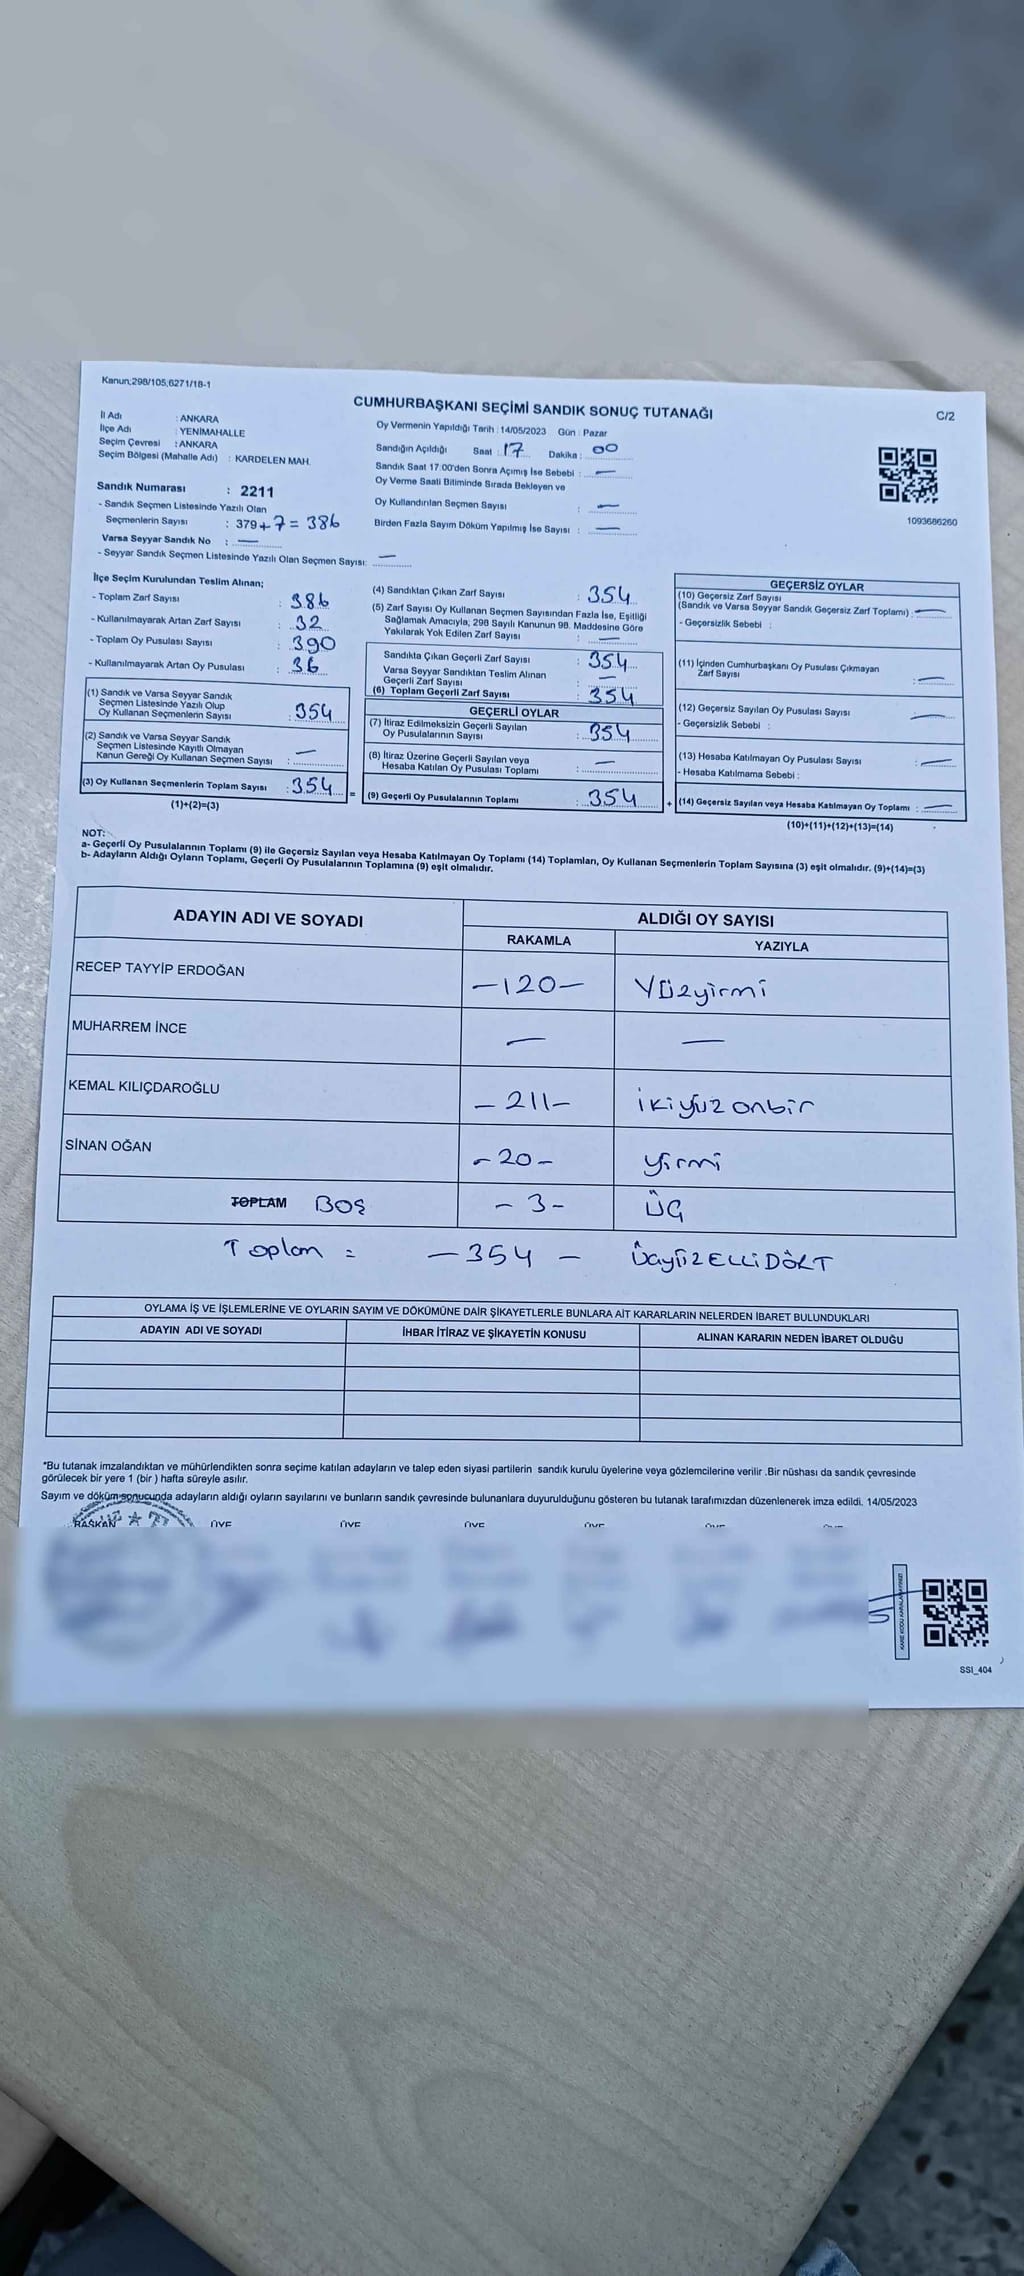 Kanun;298/105;6271/18-1
CUMHURBAŞKANI SEÇİMİ SANDIK SONUÇ TUTANAĞI
C/2
İl Adı : ANKARA
İlçe Adı : YENİMAHALLE
Seçim Çevresi : ANKARA
Seçim Bölgesi (Mahalle Adı) : KARDELEN MAH.
Sandık Numarası : 2211
- Sandık Seçmen Listesinde Yazılı Olan
Seçmenlerin Sayısı : 379 + 7 = 386
Varsa Seyyar Sandık No : —
- Seyyar Sandık Seçmen Listesinde Yazılı Olan Seçmen Sayısı: —
Oy Vermenin Yapıldığı Tarih : 14/05/2023 Gün : Pazar
Sandığın Açıldığı Saat : 17 Dakika : 00
Sandık Saat 17:00'den Sonra Açımış İse Sebebi : —
Oy Verme Saati Bitiminde Sırada Bekleyen ve
Oy Kullandırılan Seçmen Sayısı : —
Birden Fazla Sayım Döküm Yapılmış İse Sayısı : —
1093686260
İlçe Seçim Kurulundan Teslim Alınan;
- Toplam Zarf Sayısı : 386
- Kullanılmayarak Artan Zarf Sayısı : 32
- Toplam Oy Pusulası Sayısı : 390
- Kullanılmayarak Artan Oy Pusulası : 36
(1) Sandık ve Varsa Seyyar Sandık
Seçmen Listesinde Yazılı Olup
Oy Kullanan Seçmenlerin Sayısı : 354
(2) Sandık ve Varsa Seyyar Sandık
Seçmen Listesinde Kayıtlı Olmayan
Kanun Gereği Oy Kullanan Seçmen Sayısı : —
(3) Oy Kullanan Seçmenlerin Toplam Sayısı : 354 =
(1)+(2)=(3)
(4) Sandıktan Çıkan Zarf Sayısı : 354
(5) Zarf Sayısı Oy Kullanan Seçmen Sayısından Fazla İse, Eşitliği
Sağlamak Amacıyla; 298 Sayılı Kanunun 98. Maddesine Göre
Yakılarak Yok Edilen Zarf Sayısı : —
Sandıkta Çıkan Geçerli Zarf Sayısı : 354
Varsa Seyyar Sandıktan Teslim Alınan
Geçerli Zarf Sayısı : —
(6) Toplam Geçerli Zarf Sayısı : 354
GEÇERLİ OYLAR
(7) İtiraz Edilmeksizin Geçerli Sayılan
Oy Pusulalarının Sayısı : 354
(8) İtiraz Üzerine Geçerli Sayılan veya
Hesaba Katılan Oy Pusulası Toplamı : —
(9) Geçerli Oy Pusulalarının Toplamı : 354 +
GEÇERSİZ OYLAR
(10) Geçersiz Zarf Sayısı
(Sandık ve Varsa Seyyar Sandık Geçersiz Zarf Toplamı) : —
- Geçersizlik Sebebi :
(11) İçinden Cumhurbaşkanı Oy Pusulası Çıkmayan
Zarf Sayısı : —
(12) Geçersiz Sayılan Oy Pusulası Sayısı : —
- Geçersizlik Sebebi :
(13) Hesaba Katılmayan Oy Pusulası Sayısı : —
- Hesaba Katılmama Sebebi :
(14) Geçersiz Sayılan veya Hesaba Katılmayan Oy Toplamı : —
(10)+(11)+(12)+(13)=(14)
NOT:
a- Geçerli Oy Pusulalarının Toplamı (9) ile Geçersiz Sayılan veya Hesaba Katılmayan Oy Toplamı (14) Toplamları, Oy Kullanan Seçmenlerin Toplam Sayısına (3) eşit olmalıdır. (9)+(14)=(3)
b- Adayların Aldığı Oyların Toplamı, Geçerli Oy Pusulalarının Toplamına (9) eşit olmalıdır.
ADAYIN ADI VE SOYADI ALDIĞI OY SAYISI
RAKAMLA YAZIYLA
RECEP TAYYİP ERDOĞAN —120— Yüzyirmi
MUHARREM İNCE — —
KEMAL KILIÇDAROĞLU —211— ikiyüz onbir
SİNAN OĞAN —20— yirmi
TOPLAM BOŞ —3— ÜÇ
Toplam = —354— ÜçyüzELLİDÖRT
OYLAMA İŞ VE İŞLEMLERİNE VE OYLARIN SAYIM VE DÖKÜMÜNE DAİR ŞİKAYETLERLE BUNLARA AİT KARARLARIN NELERDEN İBARET BULUNDUKLARI
ADAYIN ADI VE SOYADI İHBAR İTİRAZ VE ŞİKAYETİN KONUSU ALINAN KARARIN NEDEN İBARET OLDUĞU
*Bu tutanak imzalandıktan ve mühürlendikten sonra seçime katılan adayların ve talep eden siyasi partilerin sandık kurulu üyelerine veya gözlemcilerine verilir .Bir nüshası da sandık çevresinde
görülecek bir yere 1 (bir ) hafta süreyle asılır.
Sayım ve döküm sonucunda adayların aldığı oyların sayılarını ve bunların sandık çevresinde bulunanlara duyurulduğunu gösteren bu tutanak tarafımızdan düzenlenerek imza edildi. 14/05/2023
BAŞKAN ÜYE ÜYE ÜYE ÜYE
SSI_404